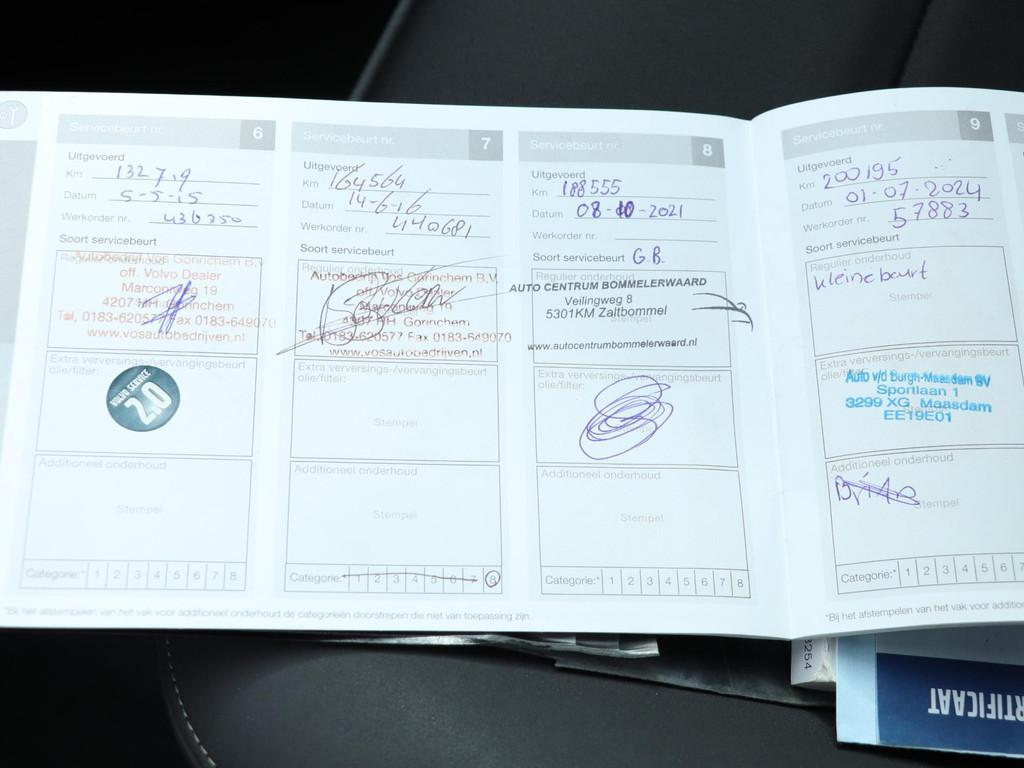 Servicebeurt nr. 6
Uitgevoerd
Km 132719
Datum 5-5-15
Werkorder nr. 436350
Soort servicebeurt
Regulier onderhoud
Autobedrijf Vos Gorinchem B.V.
off. Volvo Dealer
Marconiweg 19
4207 HH Gorinchem
Tel. 0183-620577 Fax 0183-649070
www.vosautobedrijven.nl
Extra verversings-/vervangingsbeurt
olie/filter:
VOLVO SERVICE
2.0
Additioneel onderhoud
Stempel
Categorie:* 1 2 3 4 5 6 7 8
Servicebeurt nr. 7
Uitgevoerd
Km 164564
Datum 14-6-16
Werkorder nr. 440681
Soort servicebeurt
Regulier onderhoud
Autobedrijf Vos Gorinchem B.V.
off. Volvo Dealer
Marconiweg 19
4207 HH Gorinchem
Tel. 0183-620577 Fax 0183-649070
www.vosautobedrijven.nl
Extra verversings-/vervangingsbeurt
olie/filter:
Stempel
Additioneel onderhoud
Stempel
Categorie:* 1 2 3 4 5 6 7 8
Servicebeurt nr. 8
Uitgevoerd
Km 188555
Datum 08-10-2021
Werkorder nr.
Soort servicebeurt G.B.
Regulier onderhoud
AUTO CENTRUM BOMMELERWAARD
Veilingweg 8
5301KM Zaltbommel
Stempel
www.autocentrumbommelerwaard.nl
Extra verversings-/vervangingsbeurt
olie/filter:
Additioneel onderhoud
Stempel
Categorie:* 1 2 3 4 5 6 7 8
*Bij het afstempelen van het vak voor additioneel onderhoud de categorieën doorstrepen die niet van toepassing zijn.
Servicebeurt nr. 9
Uitgevoerd
Km 200195
Datum 01-07-2024
Werkorder nr. 57883
Soort servicebeurt
Regulier onderhoud
kleine beurt
Stempel
Extra verversings-/vervangingsbeurt
olie/filter:
Auto v/d Burgh-Maasdam BV
Sportlaan 1
3299 XG Maasdam
EE19E01
Additioneel onderhoud
Stempel
Categorie:* 1 2 3 4 5 6 7
*Bij het afstempelen van het vak voor additio
3254
RTIFICAAT